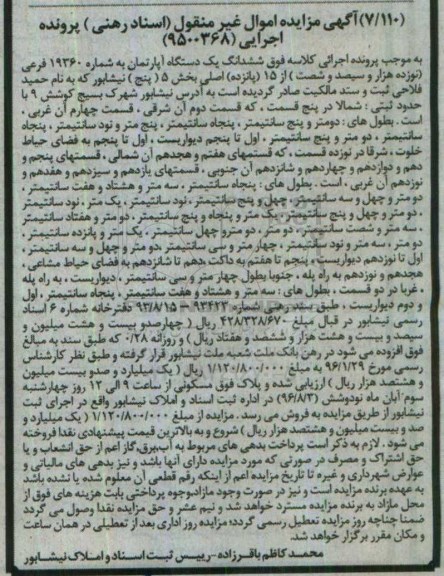 (۷/۱۱۰)آگهی مزایده اموال غیر منقول (اسناد رهنی ) پرونده
اجرایی (۹۵۰۰۳۶۸)
به موجب پرونده اجرائی کلاسه فوق ششدانگ یک دستگاه آپارتمان به شماره ۱۹۳۶۰ فرعی
(نوزده هزار و سیصد و شصت ) از ۱۵ (پانزده) اصلی بخش ۵ ( پنج ) نیشابور که به نام حمید
فلاحی ثبت و سند مالکیت صادر گردیده است به آدرس نیشابور شهرک بسیج کوشش ۹ با
حدود ثبتی : شمالا در پنج قسمت ، که قسمت دوم آن شرقی ، قسمت چهارم آن غربی ،
است . بطول های : دومتر و پنج سانتیمتر ، پنجاه سانتیمتر ، پنج متر و نود سانتیمتر ، پنجاه
سانتیمتر ، دو متر و پنج سانتیمتر ، اول تا پنجم دیواریست ، اول تا پنجم به فضای حیاط
خلوت ، شرقا در نوزده قسمت ، که قسمتهای هفتم و هجدهم آن شمالی ، قسمتهای پنجم و
دهم و دوازدهم و چهاردهم و شانزدهم آن جنوبی ، قسمتهای یازدهم و سیزدهم و هفدهم و
نوزدهم آن غربی ، است . بطول های : پنجاه سانتیمتر ، سه متر و هشتاد و هفت سانتیمتر ،
دو متر و چهل و سه سانتیمتر ، چهل و پنج سانتیمتر ، نود سانتیمتر ، یک متر ، نود سانتیمتر
، دو متر و چهل و پنج سانتیمتر ، یک متر و پنجاه و پنج سانتیمتر ، دو متر و هفتاد سانتیمتر
، سه متر و شصت سانتیمتر ، دو متر ، دو مترو چهل سانتیمتر ، یک متر و پانزده سانتیمتر ،
دو متر ، سه متر و نود سانتیمتر ، چهار متر و سی سانتیمتر ،دو متر و چهل و سه سانتیمتر ،
اول تا نوزدهم دیواریست ، پنجم تا هفتم به داکت ،دهم تا شانزدهم به فضای حیاط مشاعی ،
هجدهم و نوزدهم به راه پله ، جنوبا بطول چهار متر و سی سانتیمتر ، دیواریست ، به راه پله
، غربا در دو قسمت ، بطول های : سه متر و هشتاد و هفت سانتیمتر ، پنجاه سانتیمتر ، اول
و دوم دیواریست ، طبق سند رهنی شماره ۹۳۴۲۳ – ۹۳/۸/۱۵ دفترخانه شماره ۶ اسناد
رسمی نیشابور در قبال مبلغ ۴۲۸/۳۲۸/۶۷۰ ریال ( چهارصدو بیست و هشت میلیون و
سیصد و بیست و هشت هزار و ششصد و هفتاد ریال ) و روزانه ۰/۲۸ که طبق سند به مبالغ
فوق افزوده می شود در رهن بانک ملت شعبه ملت نیشابور قرار گرفته و طبق نظر کارشناس
رسمی مورخ ۹۶/۱/۲۹ به مبلغ ۱/۱۲۰/۸۰۰/۰۰۰ ریال ( یک میلیارد و صدو بیست میلیون
و هشتصد هزار ریال ) ارزیابی شده و پلاک فوق مسکونی از ساعت ۹ الی ۱۲ روز چهارشنبه
سوم آبان ماه نودوشش (۹۶/۸/۳) در اداره ثبت اسناد و املاک نیشابور واقع در اجرای ثبت
نیشابور از طریق مزایده به فروش می رسد . مزایده از مبلغ ۱/۱۲۰/۸۰۰/۰۰۰ ( یک میلیارد و
صد و بیست میلیون و هشتصد هزار ریال ) شروع و به بالاترین قیمت پیشنهادی نقدا فروخته
می شود . لازم به ذکر است پرداخت بدهی های مربوط به آب،برق،گاز اعم از حق انشعاب و یا
حق اشتراک و مصرف در صورتی که مورد مزایده دارای آنها باشد و نیز بدهی های مالیاتی و
عوارض شهرداری و غیره تا تاریخ مزایده اعم از اینکه رقم قطعی آن معلوم شده یا نشده باشد
به عهده برنده مزایده است و نیز در صورت وجود مازاد،وجوه پرداختی بابت هزینه های فوق از
محل مازاد به برنده مزایده مسترد خواهد شد و نیم عشر و حق مزایده نقدا وصول می گردد
ضمنا چنانچه روز مزایده تعطیل رسمی گردد؛ مزایده روز اداری بعد از تعطیلی در همان ساعت
و مکان مقرر برگزار خواهد شد.
محمد کاظم باقرزاده-رییس ثبت اسناد و املاک نیشابور